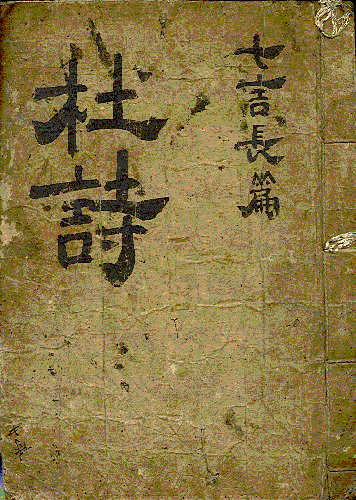 七言長篇
杜詩